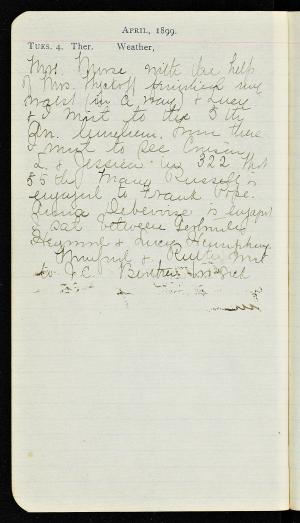 APRIL, 1899.
TUES. 4. Ther. Weather,
Mrs. Morse with the help
of Mrs. finished my
waist (in a way) & Lucy
& I went to the 5th
Av. from there
I went to see Cousin
L. & Jessica 322 West
55th. Mary Russell is
engaged to Frank Pope.
Debevoise is engaged
I sat between Gertrude
Heyme & Lucy Humphrey.
Winifred & Ruth went
to J.C. in bed